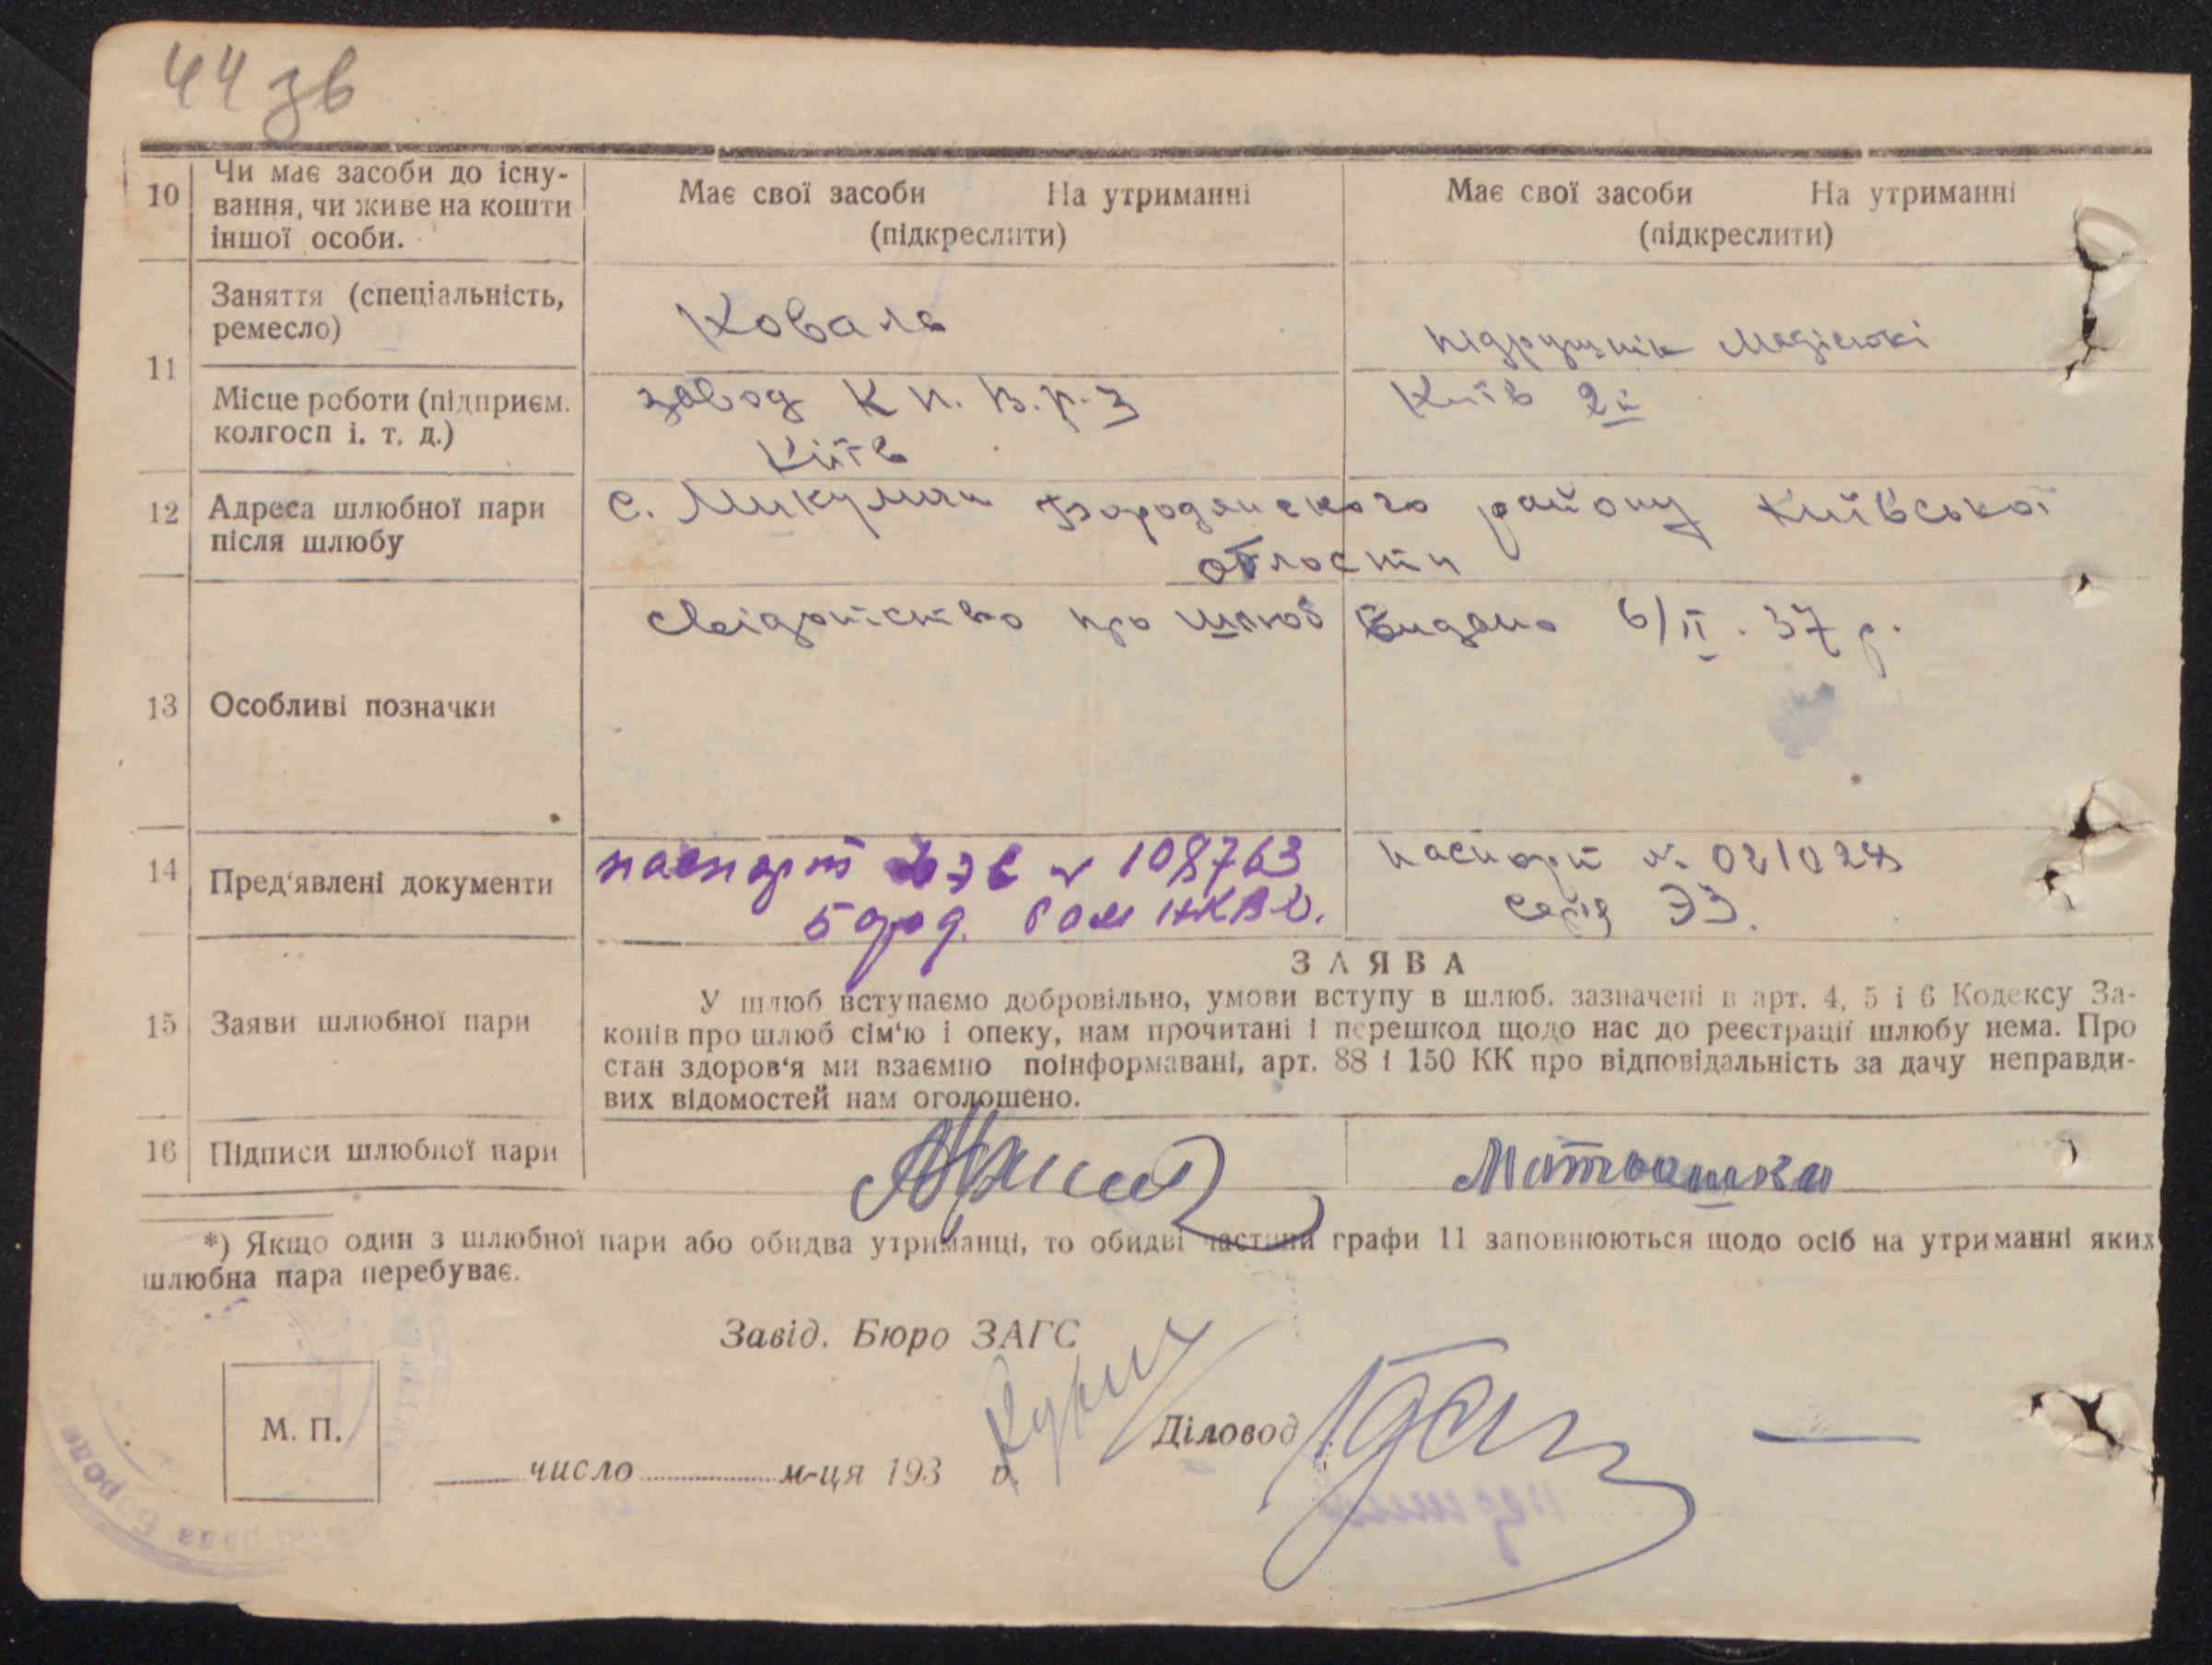 44 зв
10 Чи має засоби до існу-
вання, чи живе на кошти
іншої особи.
Має свої засоби На утриманні
(підкреслити)
Має свої засоби На утриманні
(підкреслити)
11
Заняття (спеціальність,
ремесло)
Коваль
підручник
Місце роботи (підприєм.
колгосп і. т. д.)
завод К п. в. р. з
Київ
Київ 2й
12 Адреса шлюбної пари
після шлюбу
с. Микуличи Бородянского району Київської
області
13 Особливі позначки
свідотство про шлюб видано 6/II. 37 р.
14 Пред'явлені документи
паспорт № 108763
НКВД.
паспорт № 021028
серія ЭЗ.
15 Заяви шлюбної пари
ЗАЯВА
У шлюб вступаємо добровільно, умови вступу в шлюб, зазначені в арт. 4, 5 і 6 Кодексу За-
конів про шлюб сім'ю і опеку, нам прочитані і перешкод щодо нас до реєстрації шлюбу нема. Про
стан здоров'я ми взаємно поінформавані, арт. 88 і 150 КК про відповідальність за дачу неправди-
вих відомостей нам оголошено.
16 Підписи шлюбної пари
*) Якщо один з шлюбної пари або обидва утриманці, то обидві частини графи 11 заповнюються щодо осіб на утриманні яких
шлюбна пара перебуває.
Завід. Бюро ЗАГС
М. П.
Діловод
число м-ця 193 р.